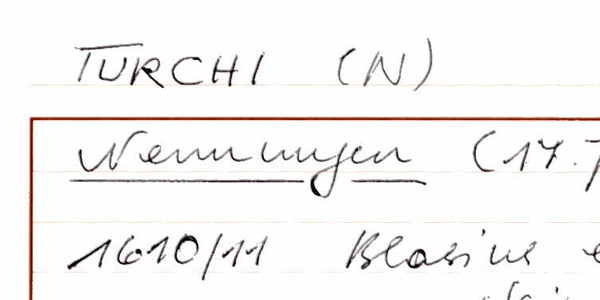 TURCHI (N)
Nennungen (17.
1610/11 Blasius